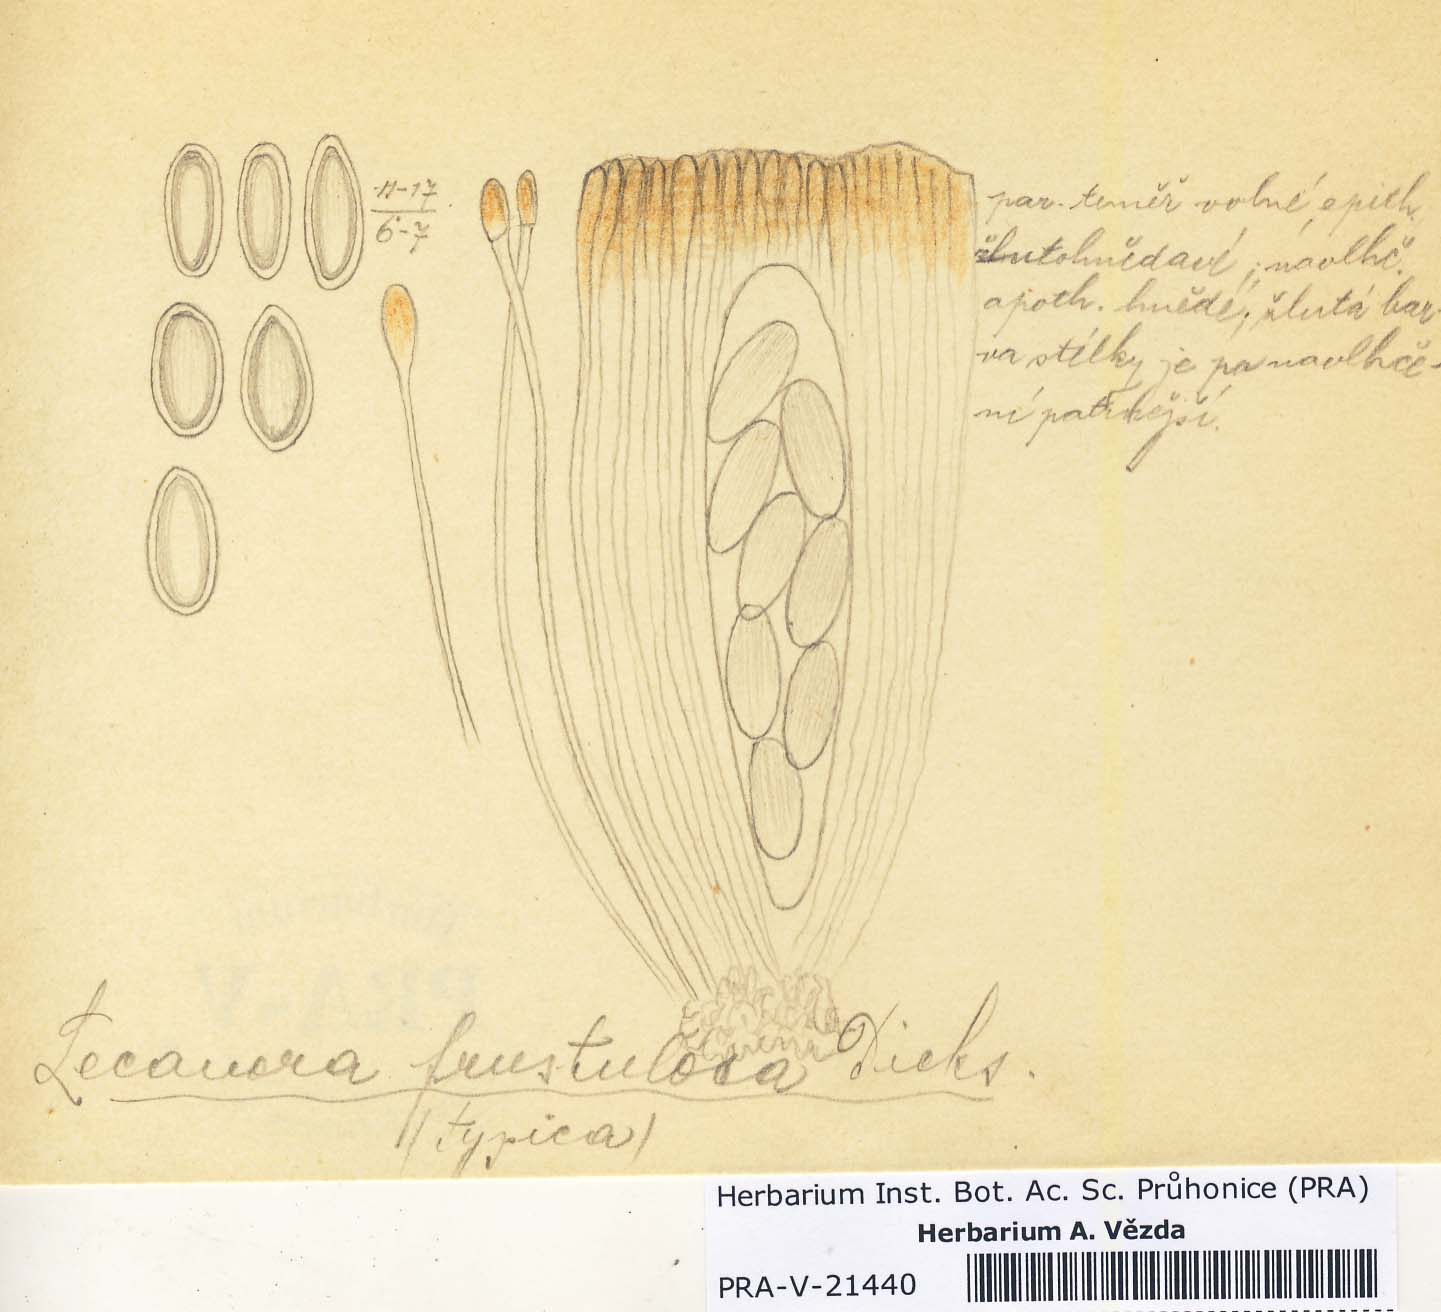 11-17
6-7
par. téměř volné, epith.
žlutohnědavé; navlhč.
apoth. hnědé; žlutá bar-
va stélky je po navlhče-
ní patrnější.
Lecanora frustulosa Dicks.
(typica)
Herbarium Inst. Bot. Ac. Sc. Průhonice (PRA)
Herbarium A. Vězda
PRA-V-21440